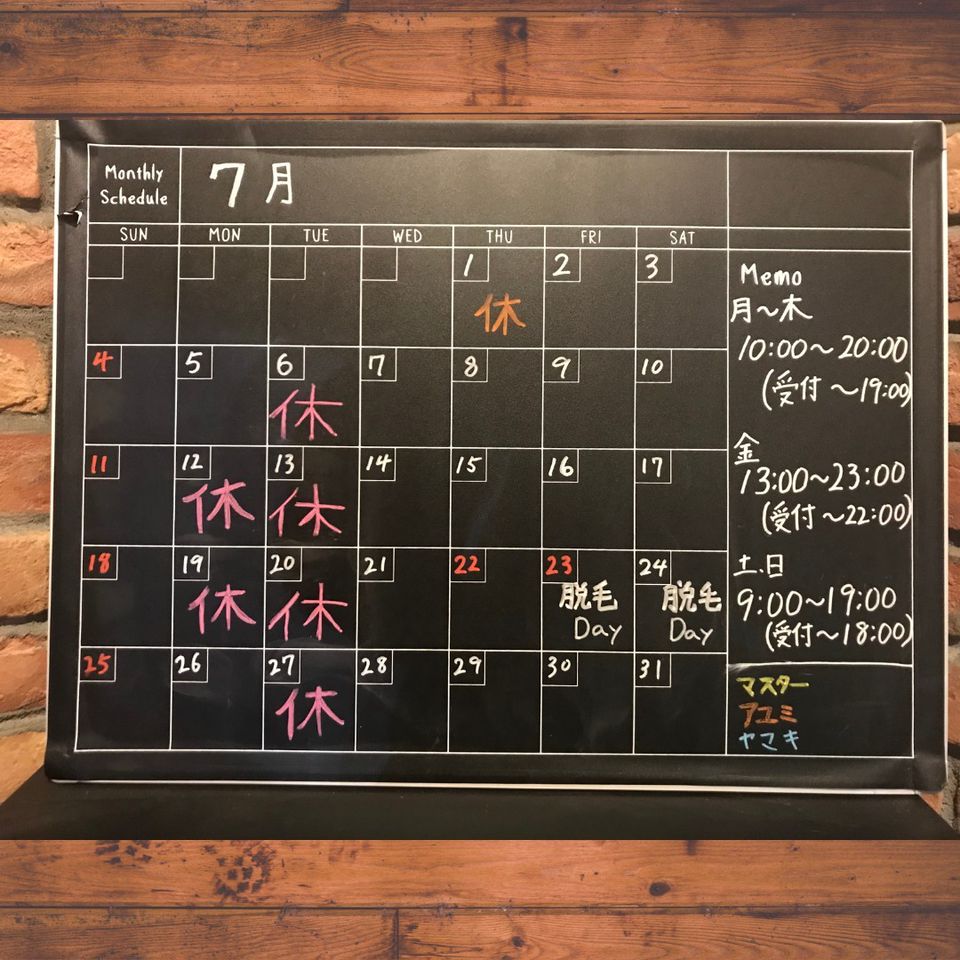 Monthly
Schedule
7月
SUN MON TUE WED THU FRI SAT
1 2 3
休
4 5 6 7 8 9 10
休
11 12 13 14 15 16 17
休 休
18 19 20 21 22 23 24
休 休 脱毛 脱毛
Day Day
25 26 27 28 29 30 31
休
Memo
月~木
10:00~20:00
(受付 ~19:00)
金
13:00~23:00
(受付 ~22:00)
土、日
9:00~19:00
(受付~18:00)
マスター
アユミ
ヤマキ